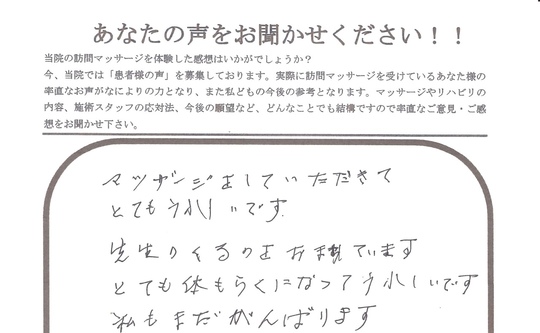 あなたの声をお聞かせください！！
当院の訪問マッサージを体験した感想はいかがでしょうか？
今、当院では「患者様の声」を募集しております。実際に訪問マッサージを受けているあなた様の
率直なお声がなによりの力となり、また私どもの今後の参考となります。マッサージやリハビリの
内容、施術スタッフの応対法、今後の願望など、どんなことでも結構ですので率直なご意見・ご感
想をお聞かせ下さい。
マッサージをしていたださて
とてもうれしいです
先生のくるのを お待ています
とても体もらくになってうれしいです
私もまだがんばります